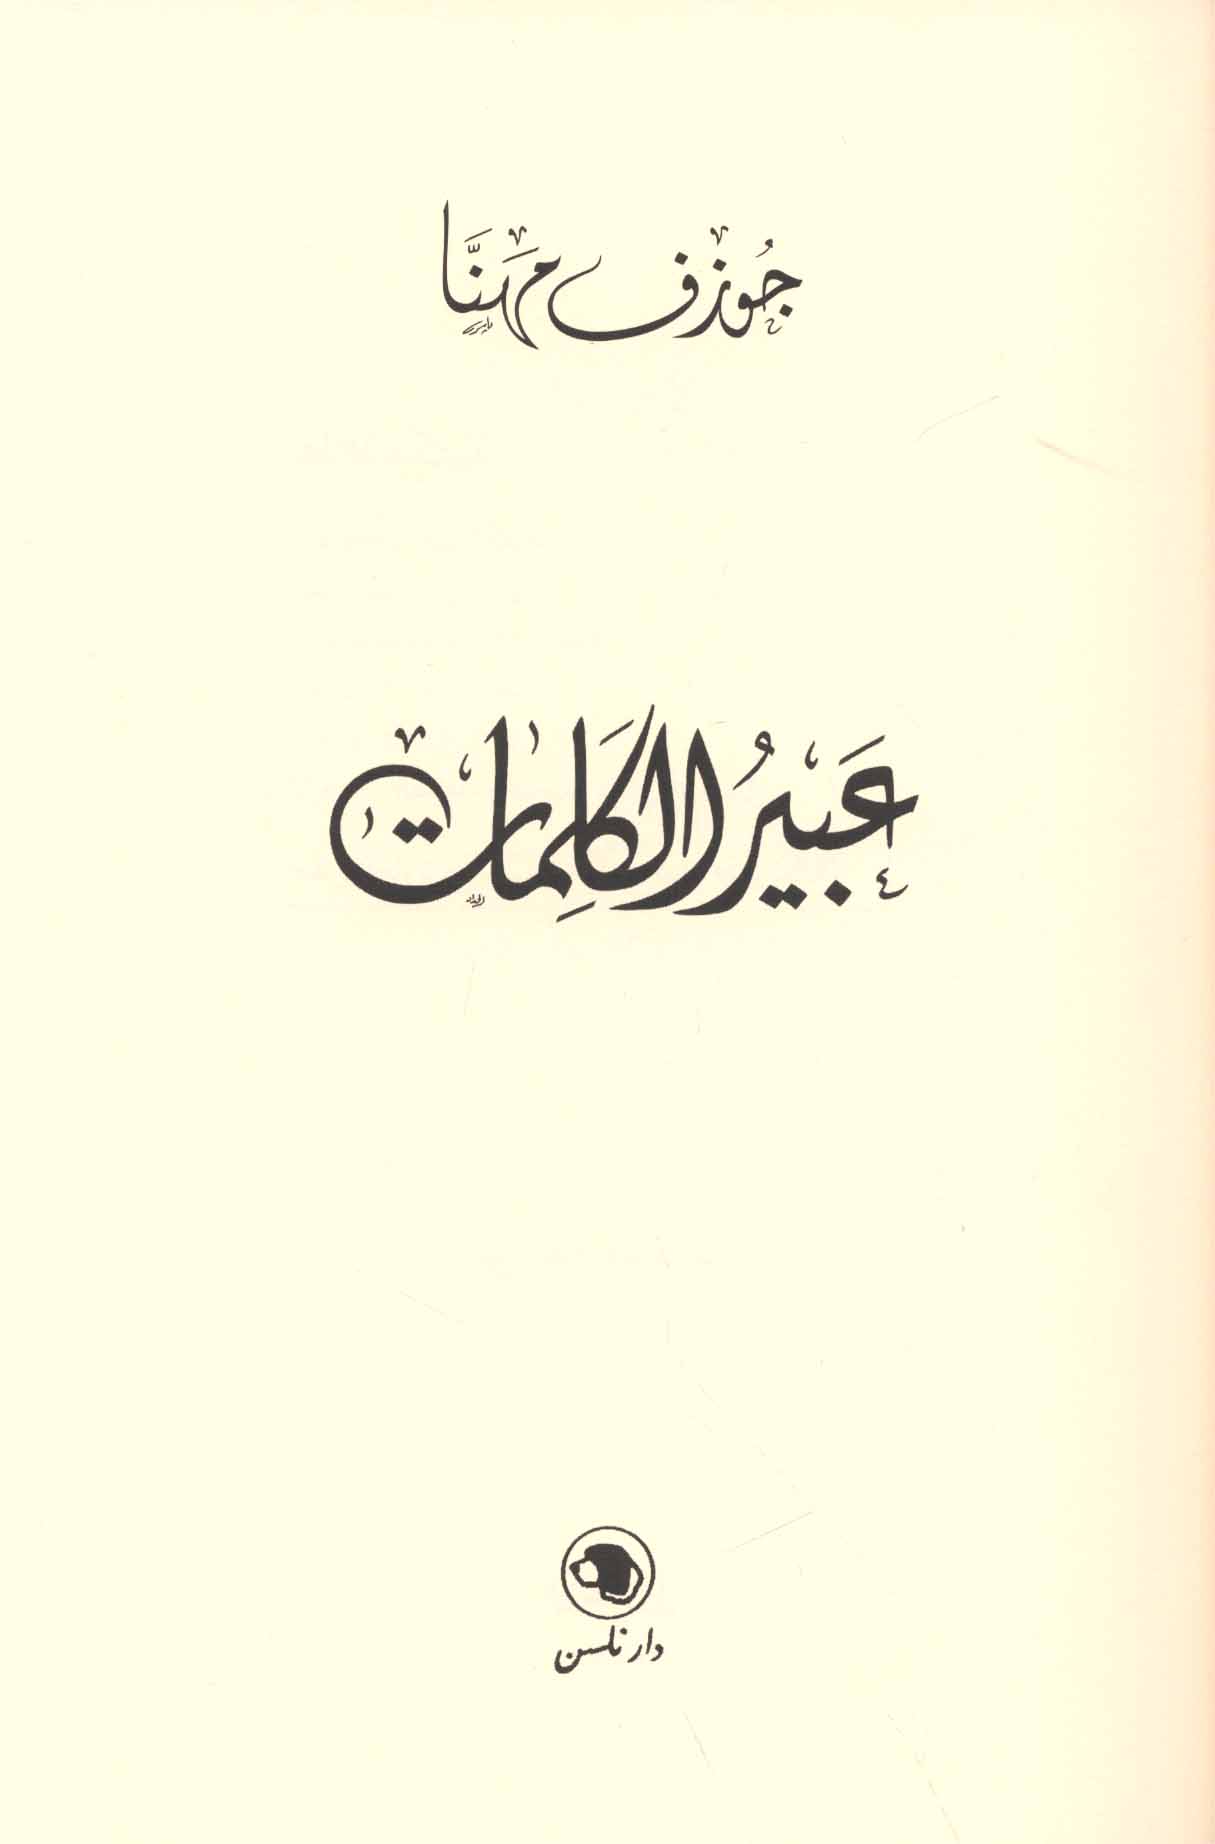 جُوزف مهنَّا
عَبيرُ الكَلِمات
دار نلسن